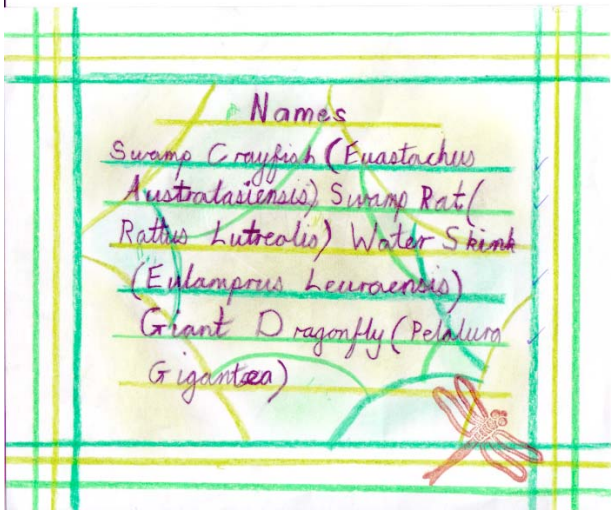 Names
Swamp Crayfish (Euastachus
Australasiensis) Swamp Rat(
Rattus Lutrealis) Water Skink
(Eulamprus Leuraensis)
Giant Dragonfly (Pelalura
Gigantea)